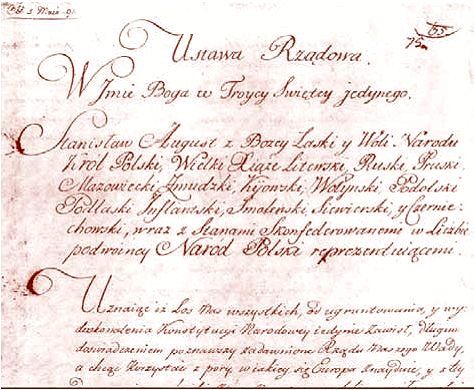 65
75
Ustawa Rządowa.
W Imie Boga w Troycy Swiętey jedynego.
Stanisław August z Bożey Łaski y Woli Narodu
Król Polski, Wielki Xiąże Litewski, Ruski, Pruski,
Mazowiecki, Żmudzki, Kijowski, Wołynski, Podolski
Podlaski Inflantski, Smolenski, Siewierski, y Czernie-
chowski, wraz z Stanami Skonfederowanemi w Liczbie
podwóyney Naród Polski reprezentuiącemi.
Uznaiąc iż Los Nas wszystkich, od ugruntowania, y wy-
doskonalenia Konstytucyi Narodowey iedynie zawisł, długim
doswiadczeniem poznawszy zadawnione Rządu Naszego Wady,
a chcąc korzystać z pory w iakiey się Europa znayduie, y z tey